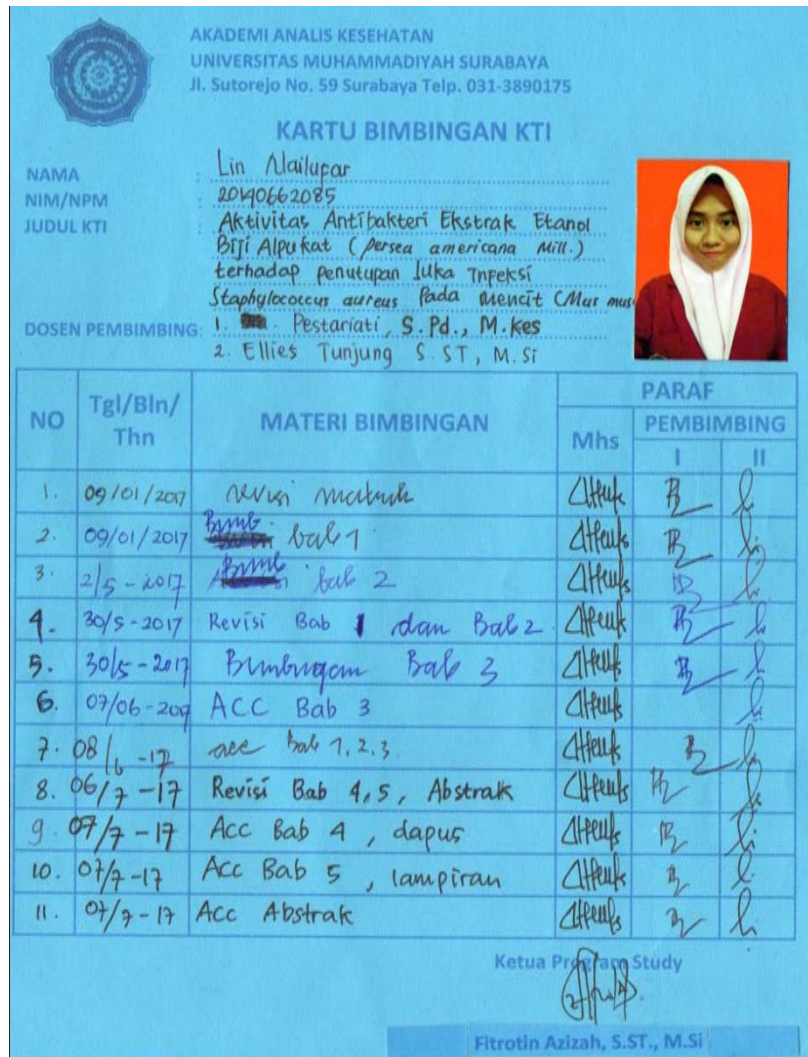 AKADEMI ANALIS KESEHATAN
UNIVERSITAS MUHAMMADIYAH SURABAYA
Jl. Sutorejo No. 59 Surabaya Telp. 031-3890175
KARTU BIMBINGAN KTI
NAMA : Lin Nailufar
NIM/NPM : 20140662085
JUDUL KTI : Aktivitas Antibakteri Ekstrak Etanol
Biji Alpukat (Persea americana Mill.)
terhadap penutupan luka Infeksi
Staphylococcus aureus Pada Mencit (Mus mus
DOSEN PEMBIMBING: 1. Pestariati, S.Pd., M.kes
2. Ellies Tunjung S.ST, M.Si
NO Tgl/Bln/Thn MATERI BIMBINGAN PARAF
Mhs PEMBIMBING
I II
1. 09/01/2017 revisi
2. 09/01/2017 Bimb bab 1
3. 2/5-2017 Bimb bab 2
4. 30/5-2017 Revisi Bab 1 dan Bab 2
5. 30/5-2017 Bimbingan Bab 3
6. 07/06-2017 ACC Bab 3
7. 08/6-17 acc bab 1,2,3.
8. 06/7-17 Revisi Bab 4,5, Abstrak
9. 07/7-17 Acc Bab 4, dapus
10. 07/7-17 Acc Bab 5, lampiran
11. 07/7-17 Acc Abstrak
Ketua Program Study
Fitrotin Azizah, S.ST., M.Si